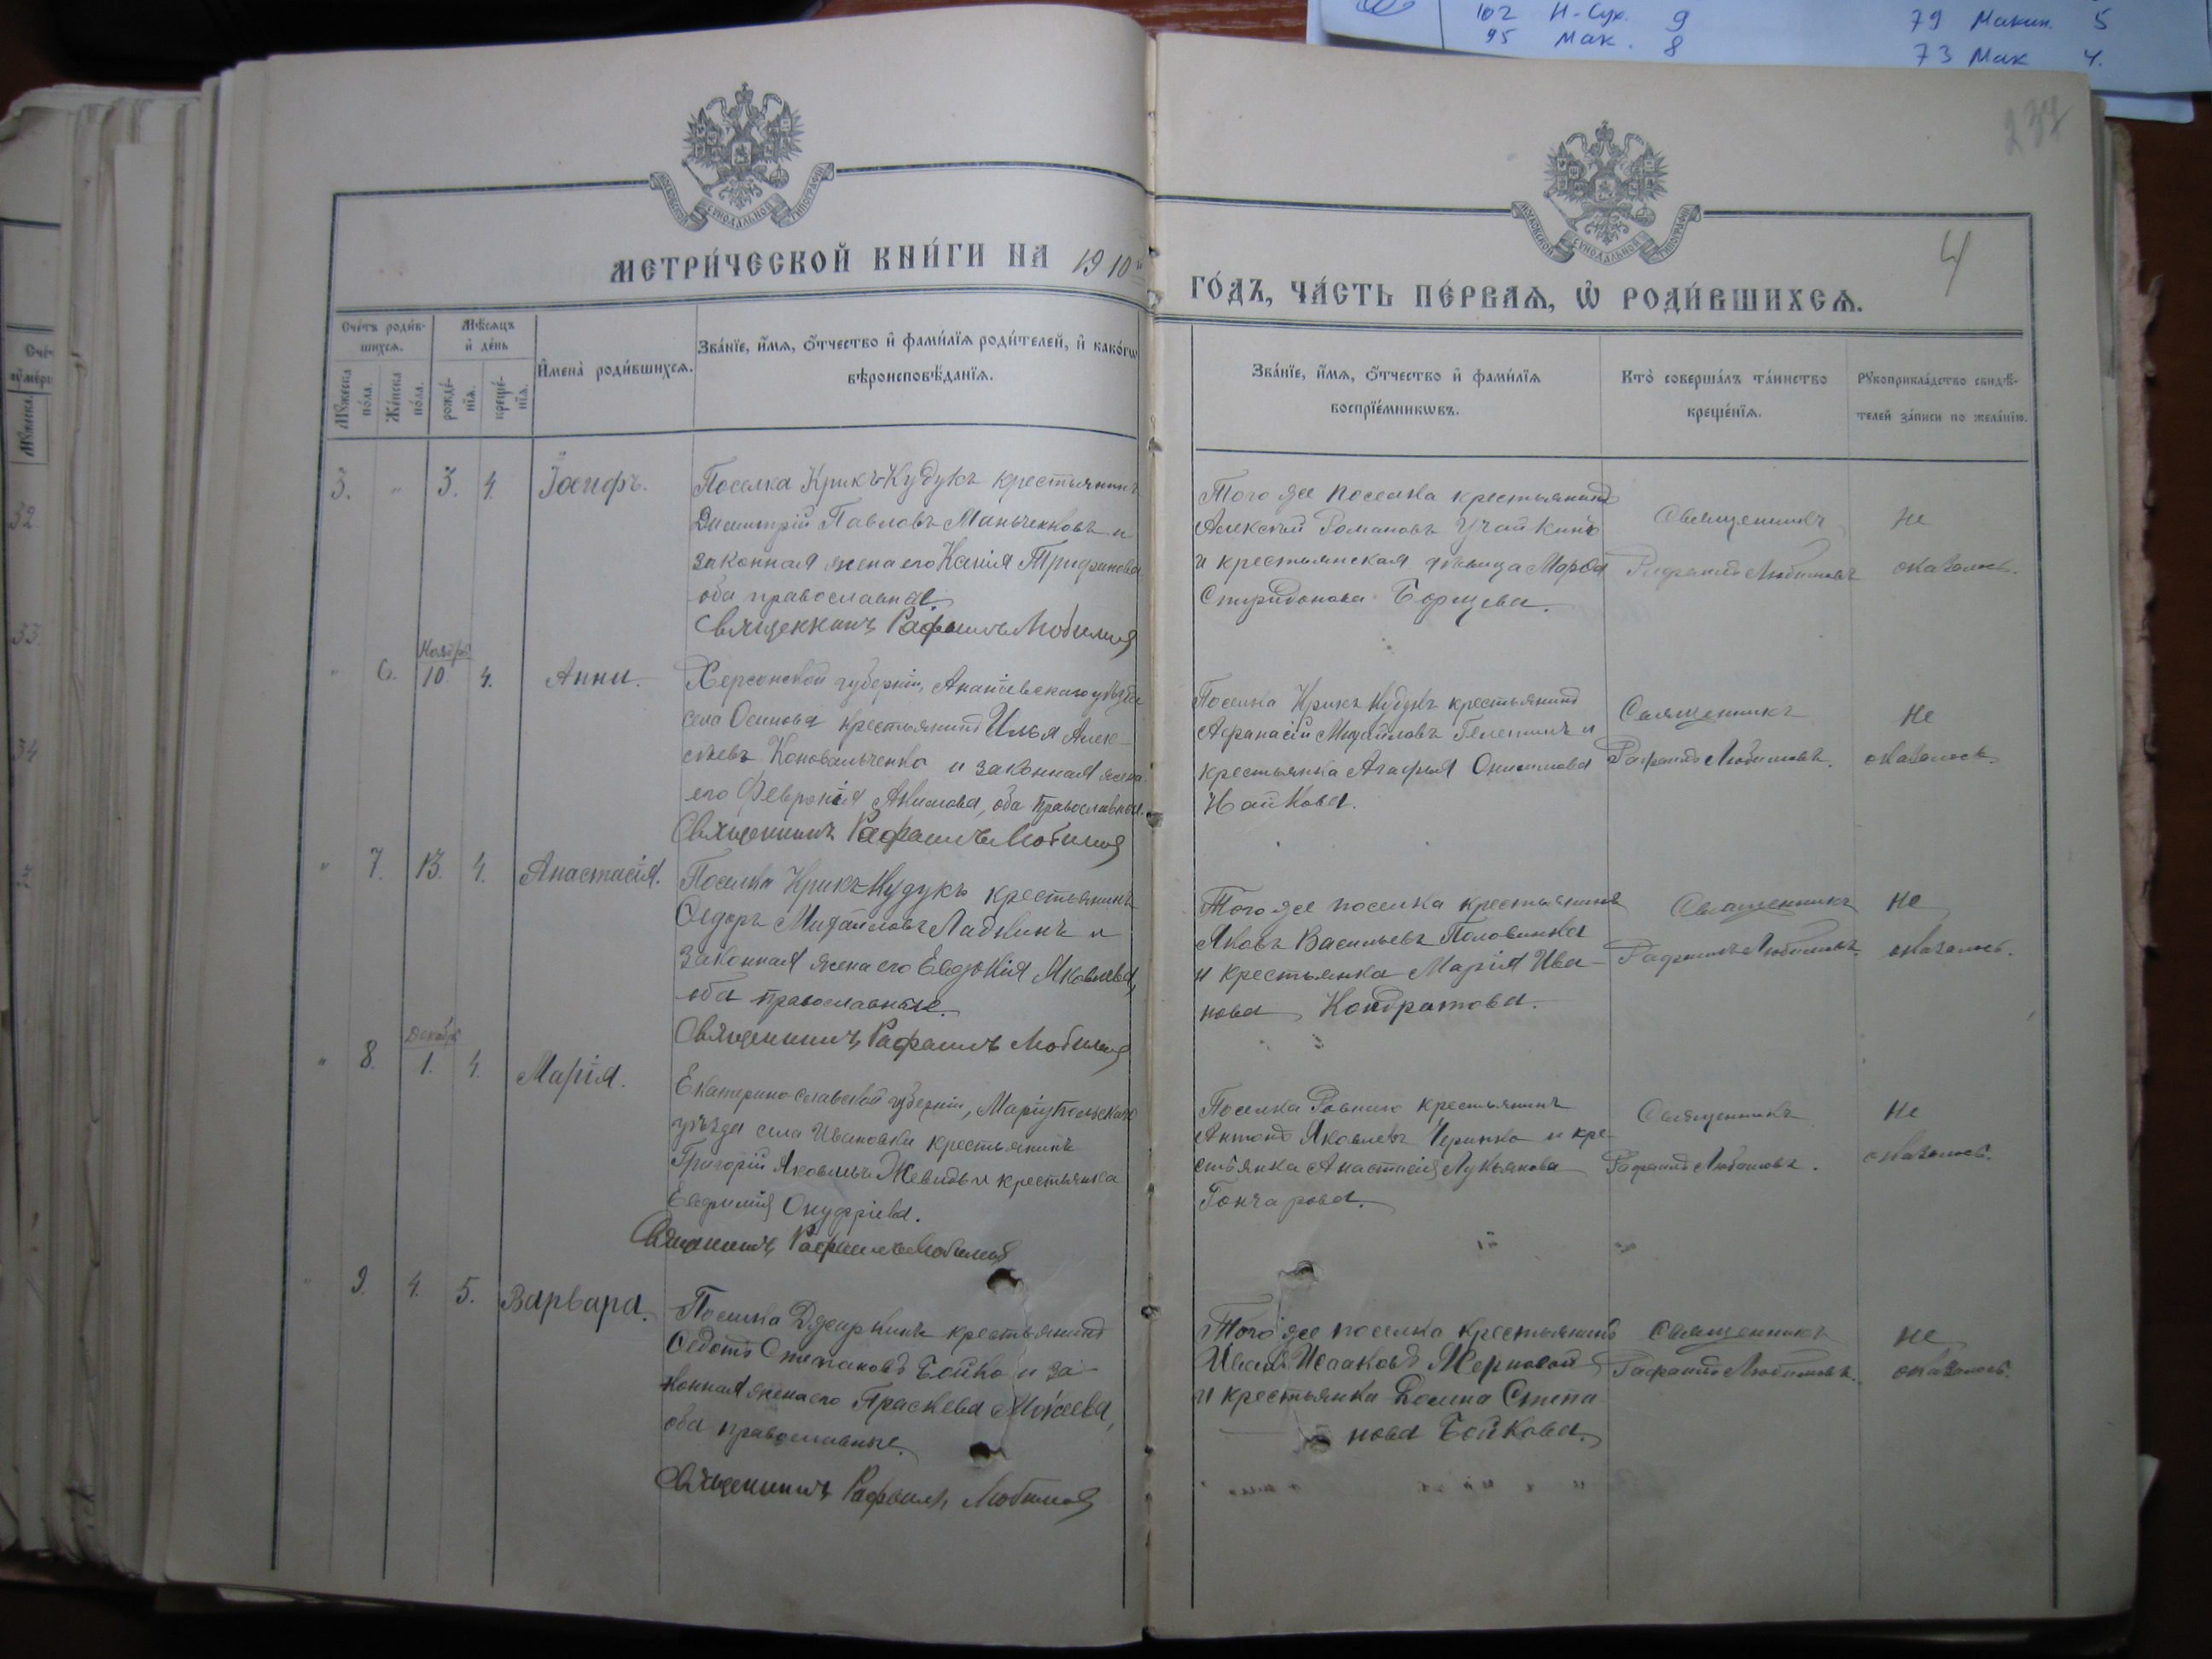 102 Н-Сух. 9
79 Макин. 5
95 Мак. 8
73 Мак 4.
237
МОСКОВСКОЙ СѴНОДАЛЬНОЙ ТИПОГРАФІИ
МОСКОВСКОЙ СѴНОДАЛЬНОЙ ТИПОГРАФІИ
4
МЕТРИ́ЧЕСКОЙ КНИ́ГИ НА 1910й
ГО́ДЪ, ЧА́СТЬ ПЕ́РВАѦ, Ѡ҆ РОДИ́ВШИХСѦ.
Сче́тъ роди́в-
шихсѧ.
Мꙋ́жеска
по́ла.
Же́нска
по́ла.
Мѣ́сѧцъ
и҆ де́нь
рожде́-
нїѧ.
креще́-
нїѧ.
И҆мена̀ роди́вшихсѧ.
Зва́нїе, и҆́мѧ, о҆́тчество и҆ фами́лїѧ роди́телей, и҆ како́гѡ
вѣроисповѣ́данїѧ.
Зва́нїе, и҆́мѧ, о҆́тчество и҆ фами́лїѧ
воспрїе́мникѡвъ.
Кто̀ соверша́лъ та́инство
креще́нїѧ.
Рꙋкоприкла́дство свидѣ́-
телей за́писи по жела́нїю.
3. " 3. 4. Іосифъ.
Поселка Крикъ-Кудукъ крестьянинъ
Димитрій Павловъ Маньченковъ и
законная жена его Ксенія Трифонова
оба православные.
Священникъ Рафаилъ Любимов
Того же поселка крестьянинъ
Алексѣй Романовъ Учайкинъ
и крестьянская дѣвица Марфа
Спиридонова Борщева.
Священникъ
Рафаилъ Любимовъ
Не
оказалось.
" 6. Ноября
10. 4. Анна.
Херсонской губерніи, Ананьевскаго уѣзда
села Осиновка крестьянинъ Илья Алек-
сѣевъ Коновальченко и законная жена
его Февронія Акимова, оба православные.
Священникъ Рафаилъ Любимов
Поселка Крикъ-Кудукъ крестьянинъ
Афанасій Михайловъ Телетинъ и
крестьянка Агафья Онисимова
Найкова.
Священникъ
Рафаилъ Любимовъ.
Не
оказалось
" 7. 13. 4. Анастасія.
Поселка Крикъ-Кудукъ крестьянинъ
Ѳедоръ Михайловъ Ладнинъ и
законная жена его Евдокія Яковлева,
оба православные.
Священникъ Рафаилъ Любимов
Того же поселка крестьянинъ
Яковъ Васильевъ Половинка
и крестьянка Марія Ива-
нова Кондратова.
Священникъ
Рафаилъ Любимовъ.
Не
оказалось.
" 8. Декабря
1. 4. Марія.
Екатеринославской губерніи, Маріупольскаго
уѣзда села Ивановки крестьянинъ
Григорій Яковлевъ Жевидь и крестьянка
Евфимія Онуфріева.
Священникъ Рафаилъ Любимов
Поселка Ровнаго крестьянинъ
Антонъ Яковлевъ Черинко и кре-
стьянка Анастасія Лукьянова
Гончарова.
Священникъ
Рафаилъ Любимовъ.
Не
оказалось.
" 9. 4. 5. Варвара.
Поселка Джаркинъ крестьянинъ
Ѳедотъ Степановъ Бойко и за-
конная жена его Праскева Моисеева,
оба православные.
Священникъ Рафаилъ Любимов
Того же поселка крестьянинъ
Иванъ Исааковъ Жерновой
и крестьянка Домна Степа
нова Бойкова.
Священникъ
Рафаилъ Любимовъ.
Не
оказалось.